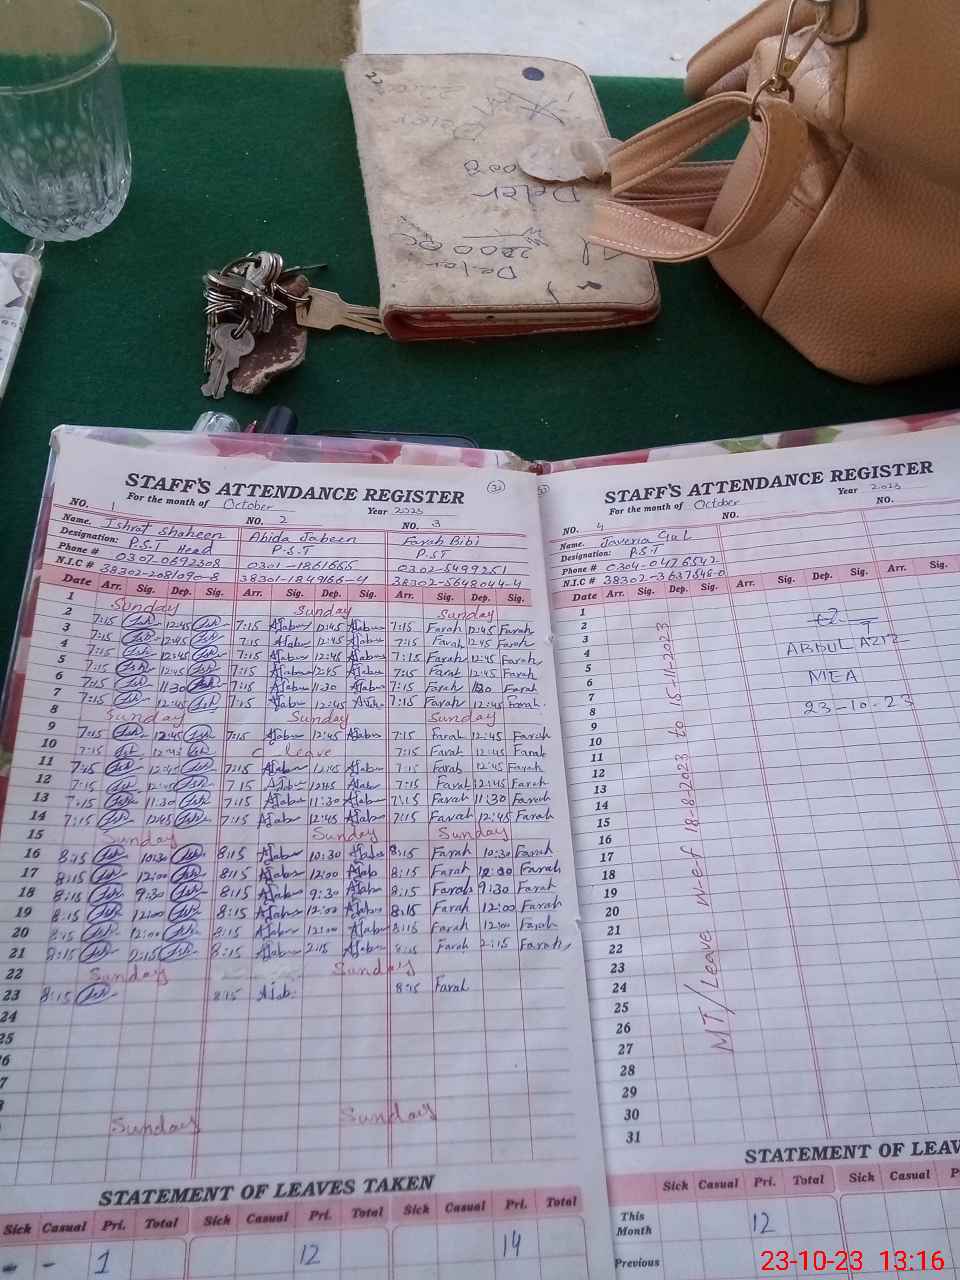 Deler
Deler
2200 QC
Deler
STAFF'S ATTENDANCE REGISTER
For the month of October Year 2023
NO. 1 NO. 2 NO. 3
Name. Ishrat Shaheen Abida Jabeen Farah Bibi
Designation: P.S.T Head P.S.T P.ST
Phone # 0307-0692308 0301-1861666 0302-5499251
N.I.C # 38302-2081090-8 38301-1849166-4 38302-5648044-4
Date Arr. Sig. Dep. Sig. Arr. Sig. Dep. Sig. Arr. Sig. Dep. Sig.
1 Sunday Sunday Sunday
2 7:15 12:45 7:15 12:45 7:15 Farah 12:45 Farah
3 7:15 12:45 7:15 12:45 7:15 Farah 12:45 Farah
4 7:15 12:45 7:15 12:45 7:15 Farah 12:45 Farah
5 7:15 12:45 7:15 12:45 7:15 Farah 12:45 Farah
6 7:15 11:30 7:15 11:30 7:15 Farah Farah
7 7:15 12:45 7:15 12:45 7:15 Farah 12:45 Farah
8 Sunday Sunday Sunday
9 7:15 12:45 7:15 12:45 7:15 Farah 12:45 Farah
10 7:15 12:45 C leave 7:15 Farah 12:45 Farah
11 7:15 12:45 7:15 12:45 7:15 Farah 12:45 Farah
12 7:15 12:45 7:15 12:45 7:15 Farah 12:45 Farah
13 7:15 11:30 7:15 11:30 7:15 Farah 11:30 Farah
14 7:15 12:45 7:15 12:45 7:15 Farah 12:45 Farah
15 Sunday Sunday Sunday
16 8:15 10:30 8:15 10:30 8:15 Farah 10:30 Farah
17 8:15 12:00 8:15 12:00 8:15 Farah 12:00 Farah
18 8:15 9:30 8:15 9:30 8:15 Farah 9:30 Farah
19 8:15 12:00 8:15 12:00 8:15 Farah 12:00 Farah
20 8:15 12:00 8:15 12:00 8:15 Farah 12:00 Farah
21 8:15 2:15 8:15 2:15 8:15 Farah 2:15 Farah
22 Sunday Sunday
23 8:15 8:15 8:15 Farah
24
25
Sunday Sunday
STATEMENT OF LEAVES TAKEN
Sick Casual Pri. Total Sick Casual Pri. Total Sick Casual Pri. Total
- - 1 12 14
STAFF'S ATTENDANCE REGISTER
For the month of October Year 2023
NO. 4 NO. NO.
Name. Javeria Gul
Designation: P.S.T
Phone # 0304-0476542
N.I.C # 38302-3637548-0
Date Arr. Sig. Dep. Sig. Arr. Sig. Dep. Sig. Arr. Sig.
1
2
3
4
5
6
7
8
9
10
11
12
13
14
15
16
17
18
19
20
21
22
23
24
25
26
27
28
29
30
31
MT/Leave w.e.f 18-8-2023 to 15-11-2023
ABDUL AZIZ
MEA
23-10-23
STATEMENT OF LEAV
Sick Casual Pri. Total Sick Casual Pri.
This Month 12
Previous
23-10-23 13:16